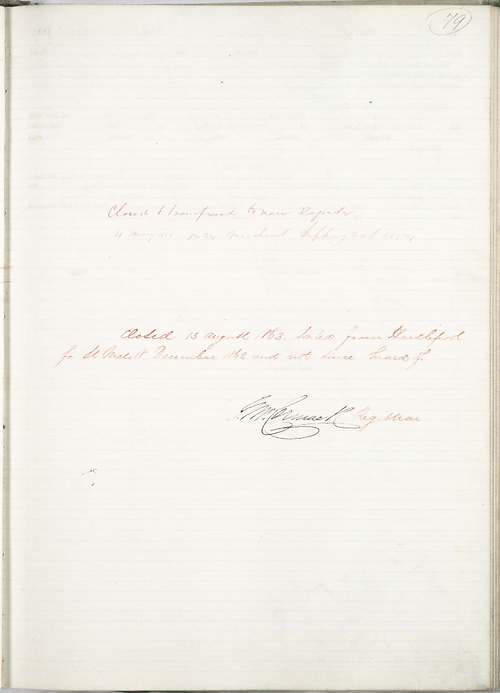 79
Closed & transferred to new Register
under Merchant Shipping Act 1854
Closed 13 August 1863. Sailed from Hartlepool
for St Malo 18 December 1862 and not since heard of.
McCormack Registrar